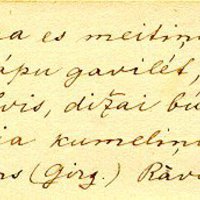 a es meitiņ
āpu gavilēt,
vis, dižai bū
ia kumeliņ
rs (Girg.) Rāv